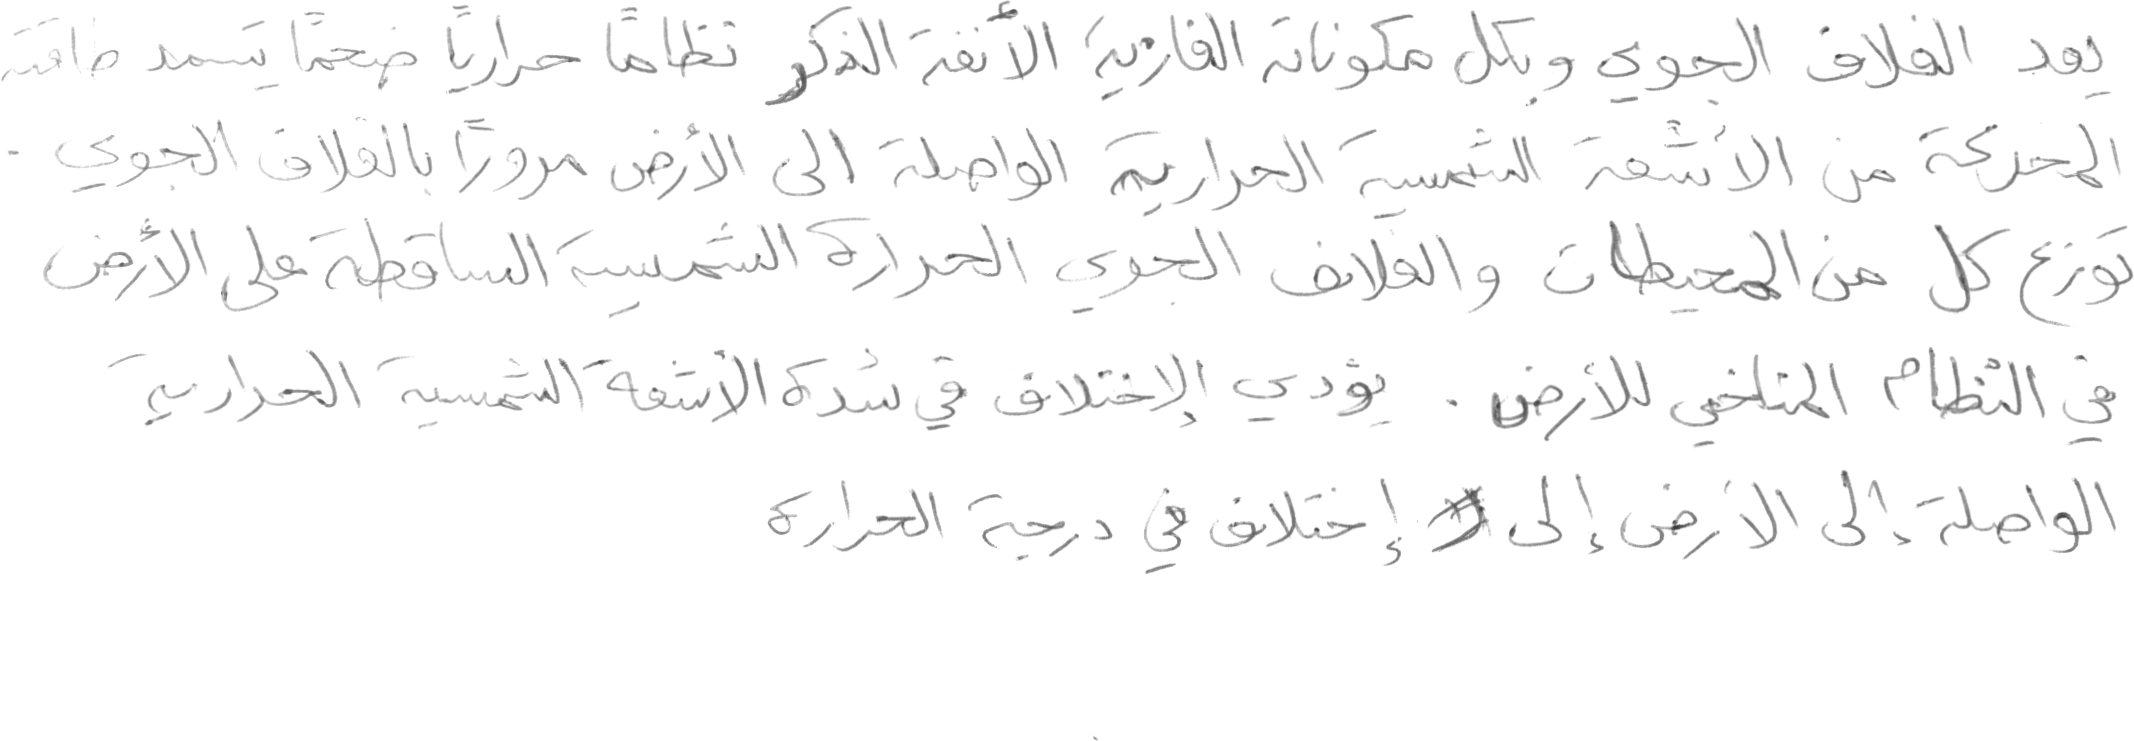 يعد الغلاف الجوي وبكل مكوناته الغازية الأنفة الذكر نظامًا حراريًا ضخمًا يستمد طاقته
المحركة من الأشعة الشمسية الحرارية الواصلة الى الأرض مرورًا بالغلاف الجوي .
توزع كل من المحيطات والغلاف الجوي الحرارة الشمسية الساقطة على الأرض
في النظام المناخي للأرض . يؤدي الإختلاف في شدة الأشعة الشمسية الحرارية
الواصلة إلى الأرض إلى إختلاف في درجة الحرارة